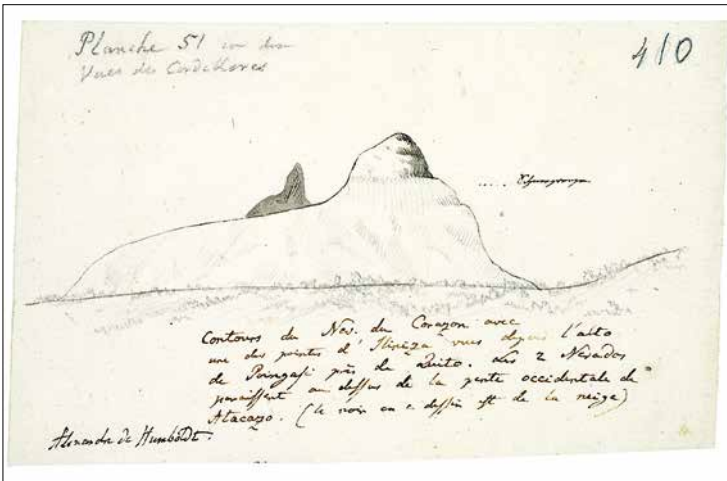 Planche 51
Vues des Cordillères
410
Contours du Nev. du Corazon avec
une des pointes d'Iliniza vues depuis l'alto
de Poingasi près de Quito. Les 2 Nevados
paraissent au dessus de la pente occidentale de
Atacazo. (le noir en dessin est de la neige)
Alexandre de Humboldt.